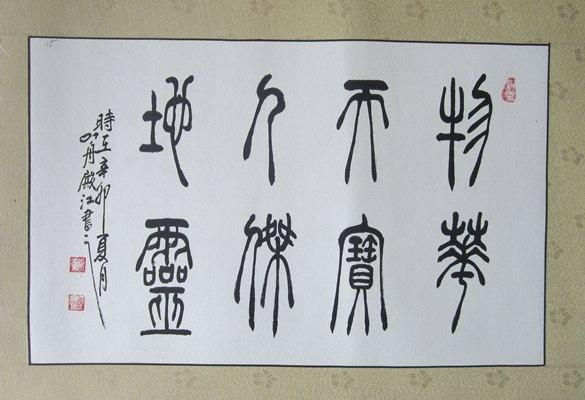 物華
天寶
人傑
地靈
時在辛卯夏月
江書